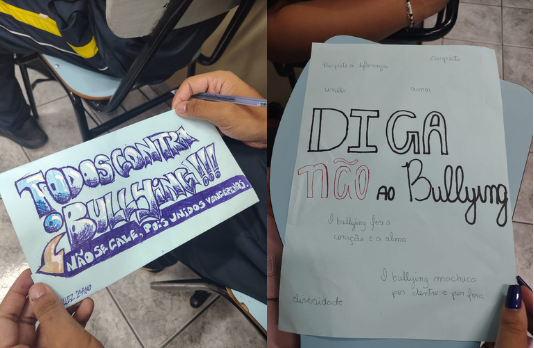 TODOS CONTRA
O BULLYING!!!
NÃO SE CALE, POIS UNIDOS VENCEREMOS.
respeito
união
DIGA
NÃO AO Bullying
O bullying fere o
coração e a alma
O bullying machuca
por dentro e por fora
diversidade